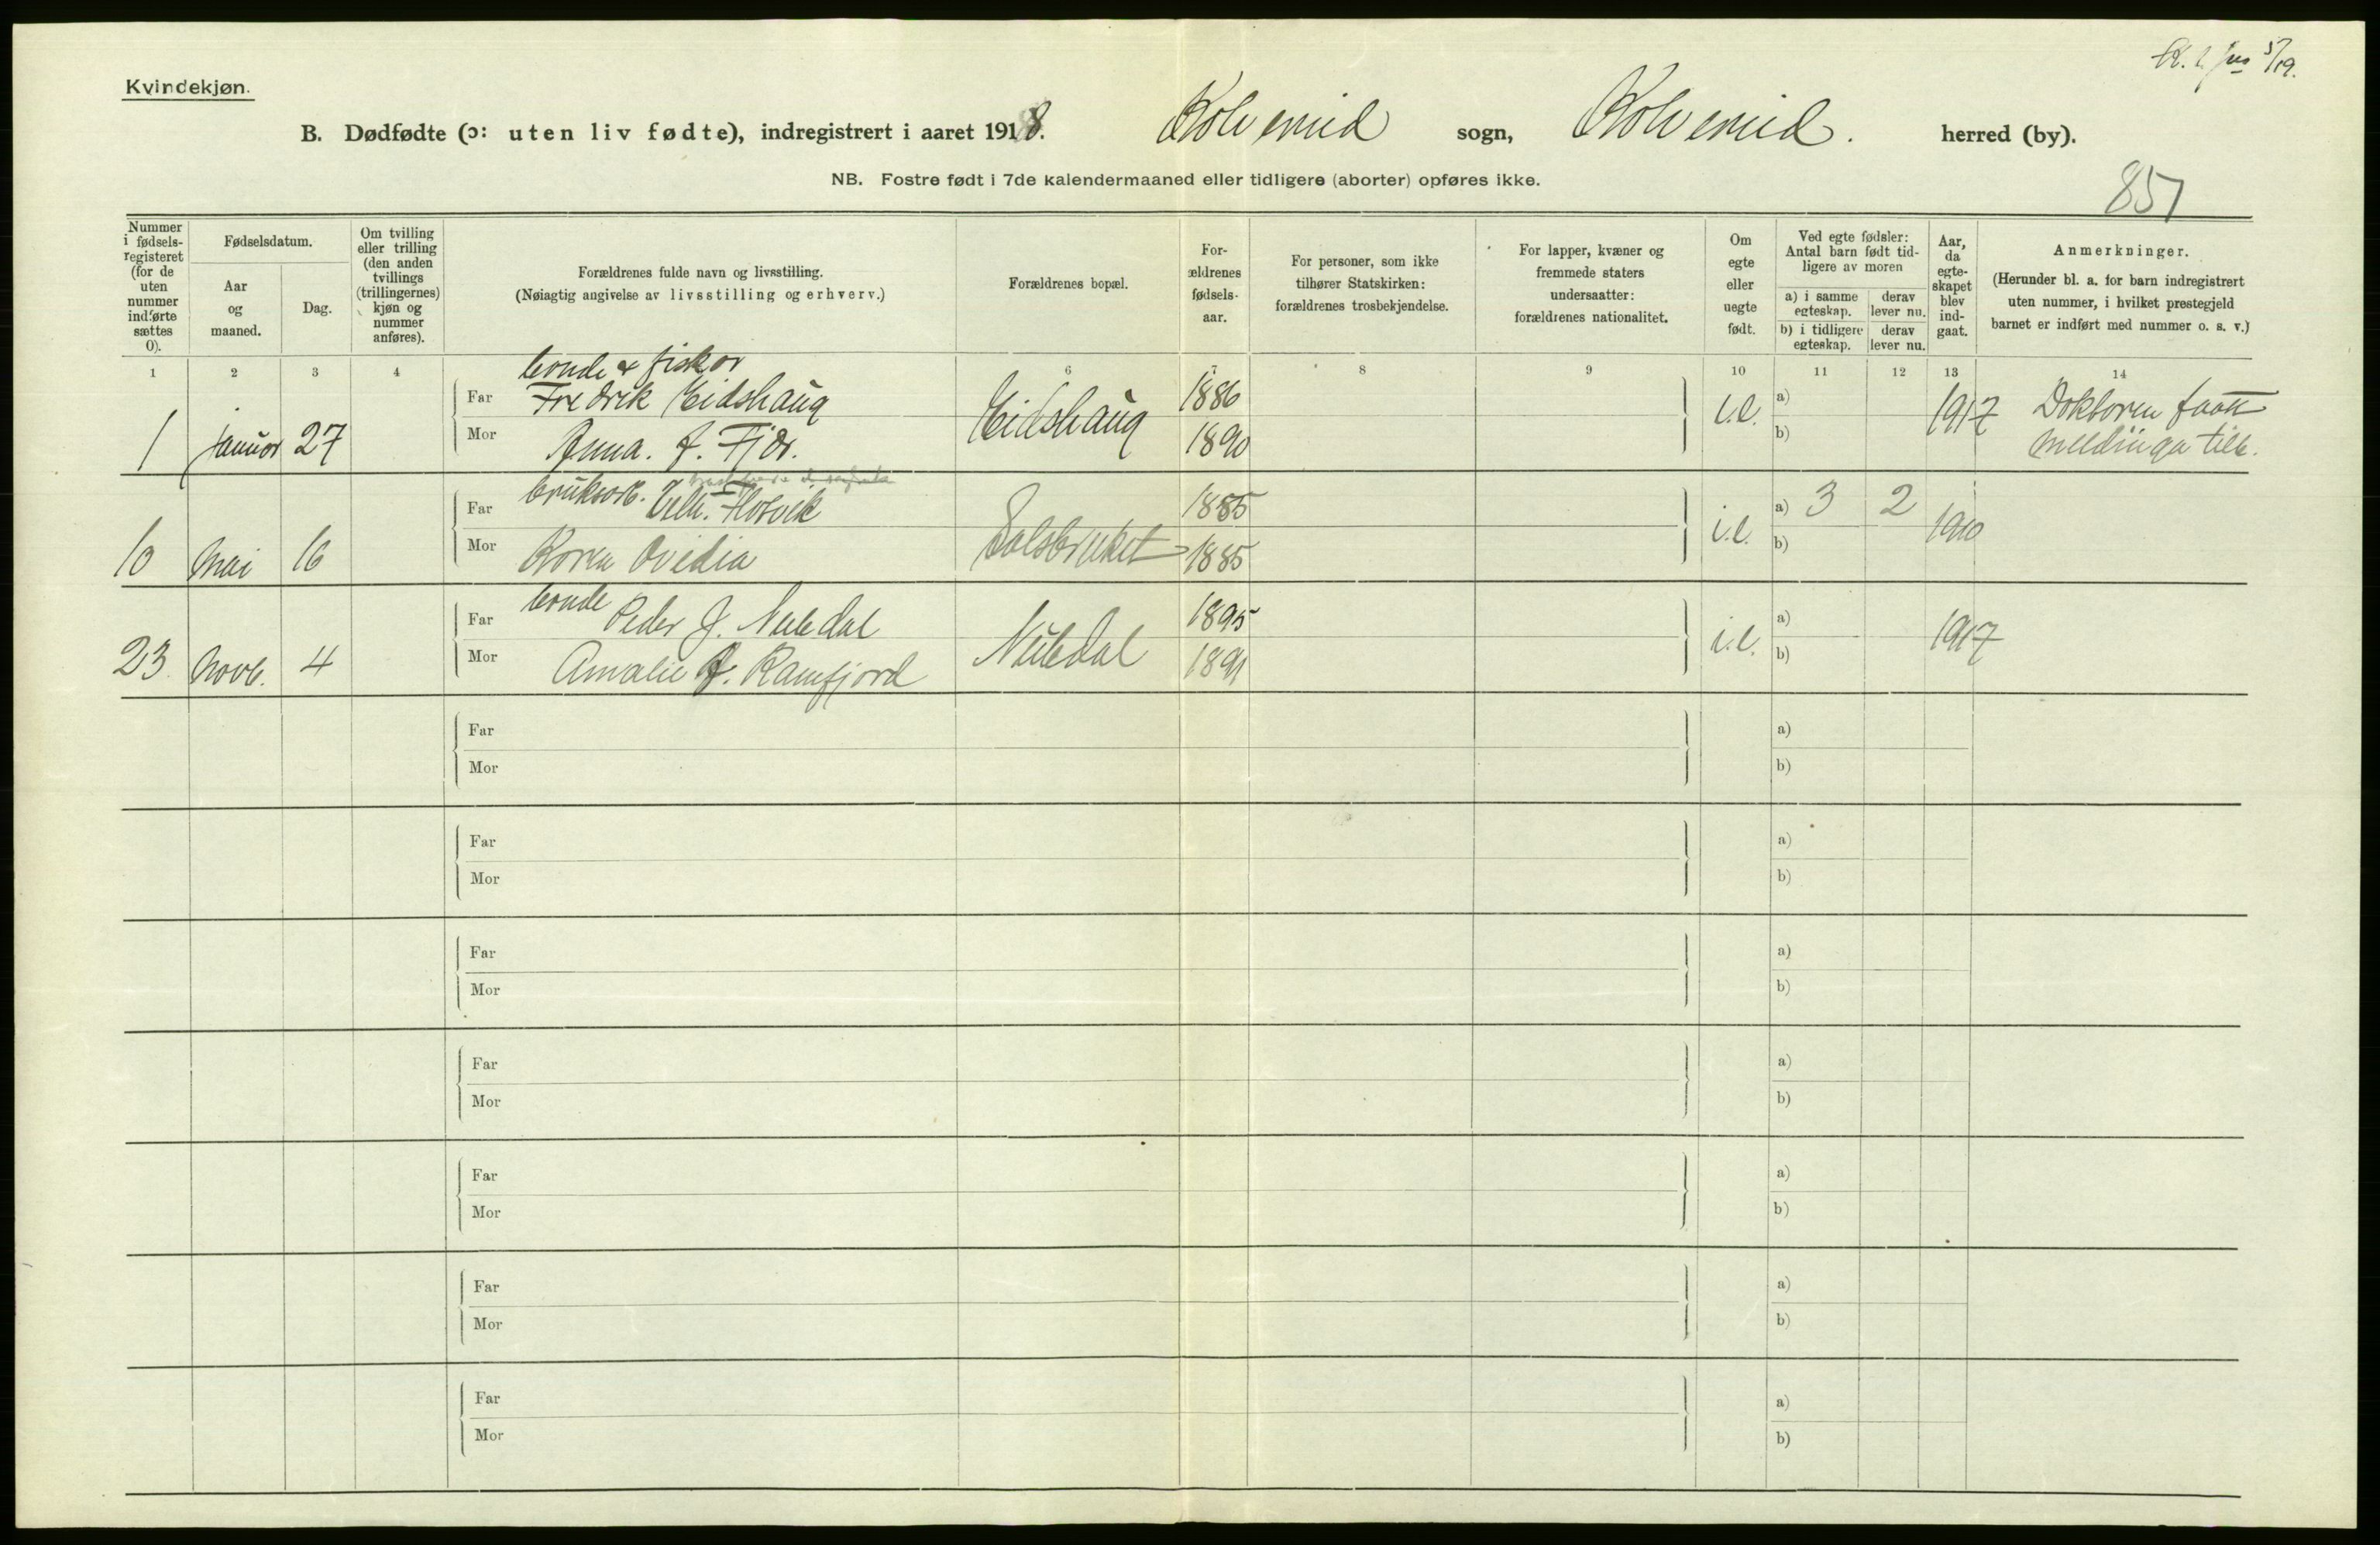 Kvindekjøn.
B. Dødfødte (ɔ: uten liv fødte), indregistrert i aaret 1918. Kolvereid sogn, Kolvereid. herred (by).
NB. Fostre født i 7de kalendermaaned eller tidligere (aborter) opføres ikke.
857
Nummer i fødsels-registeret (for de uten nummer indførte sættes 0).
Fødselsdatum.
Aar og maaned.
Dag.
Om tvilling eller trilling (den anden tvillings (trillingernes) kjøn og nummer anføres).
Forældrenes fulde navn og livsstilling.
(Nøiagtig angivelse av livsstilling og erhverv.)
Forældrenes bopæl.
For-ældrenes fødsels-aar.
For personer, som ikke tilhører Statskirken: forældrenes trosbekjendelse.
For lapper, kvæner og fremmede staters undersaatter: forældrenes nationalitet.
Om egte eller uegte født.
Ved egte fødsler: Antal barn født tid-ligere av moren
a) i samme egteskap. derav lever nu.
b) i tidligere egteskap. derav lever nu.
Aar, da egte-skapet blev ind-gaat.
Anmerkninger.
(Herunder bl. a. for barn indregistrert uten nummer, i hvilket prestegjeld barnet er indført med nummer o. s. v.)
1 2 3 4 6 7 8 9 10 11 12 13 14
bonde & fisker
1 januar 27 Far Fredrik Eidshaug Eidshaug 1886 i.e. a) 1917 Doktoren faatt
Mor Anna. f. Fjær. 1890 b) meldinga tilb.
bruksarb.
10 Mai 16 Far Vilh. Flotvik Salsbruket 1885 i.e. a) 3 2 1910
Mor Karen Ovedia 1885 b)
bonde
23. Novb. 4 Far Peder J. Nubdal Nubdal 1895 i.e. a) 1917
Mor Amalie f. Ramfjord 1891 b)
Far a)
Mor b)
Far a)
Mor b)
Far a)
Mor b)
Far a)
Mor b)
Far a)
Mor b)
Far a)
Mor b)
Far a)
Mor b)